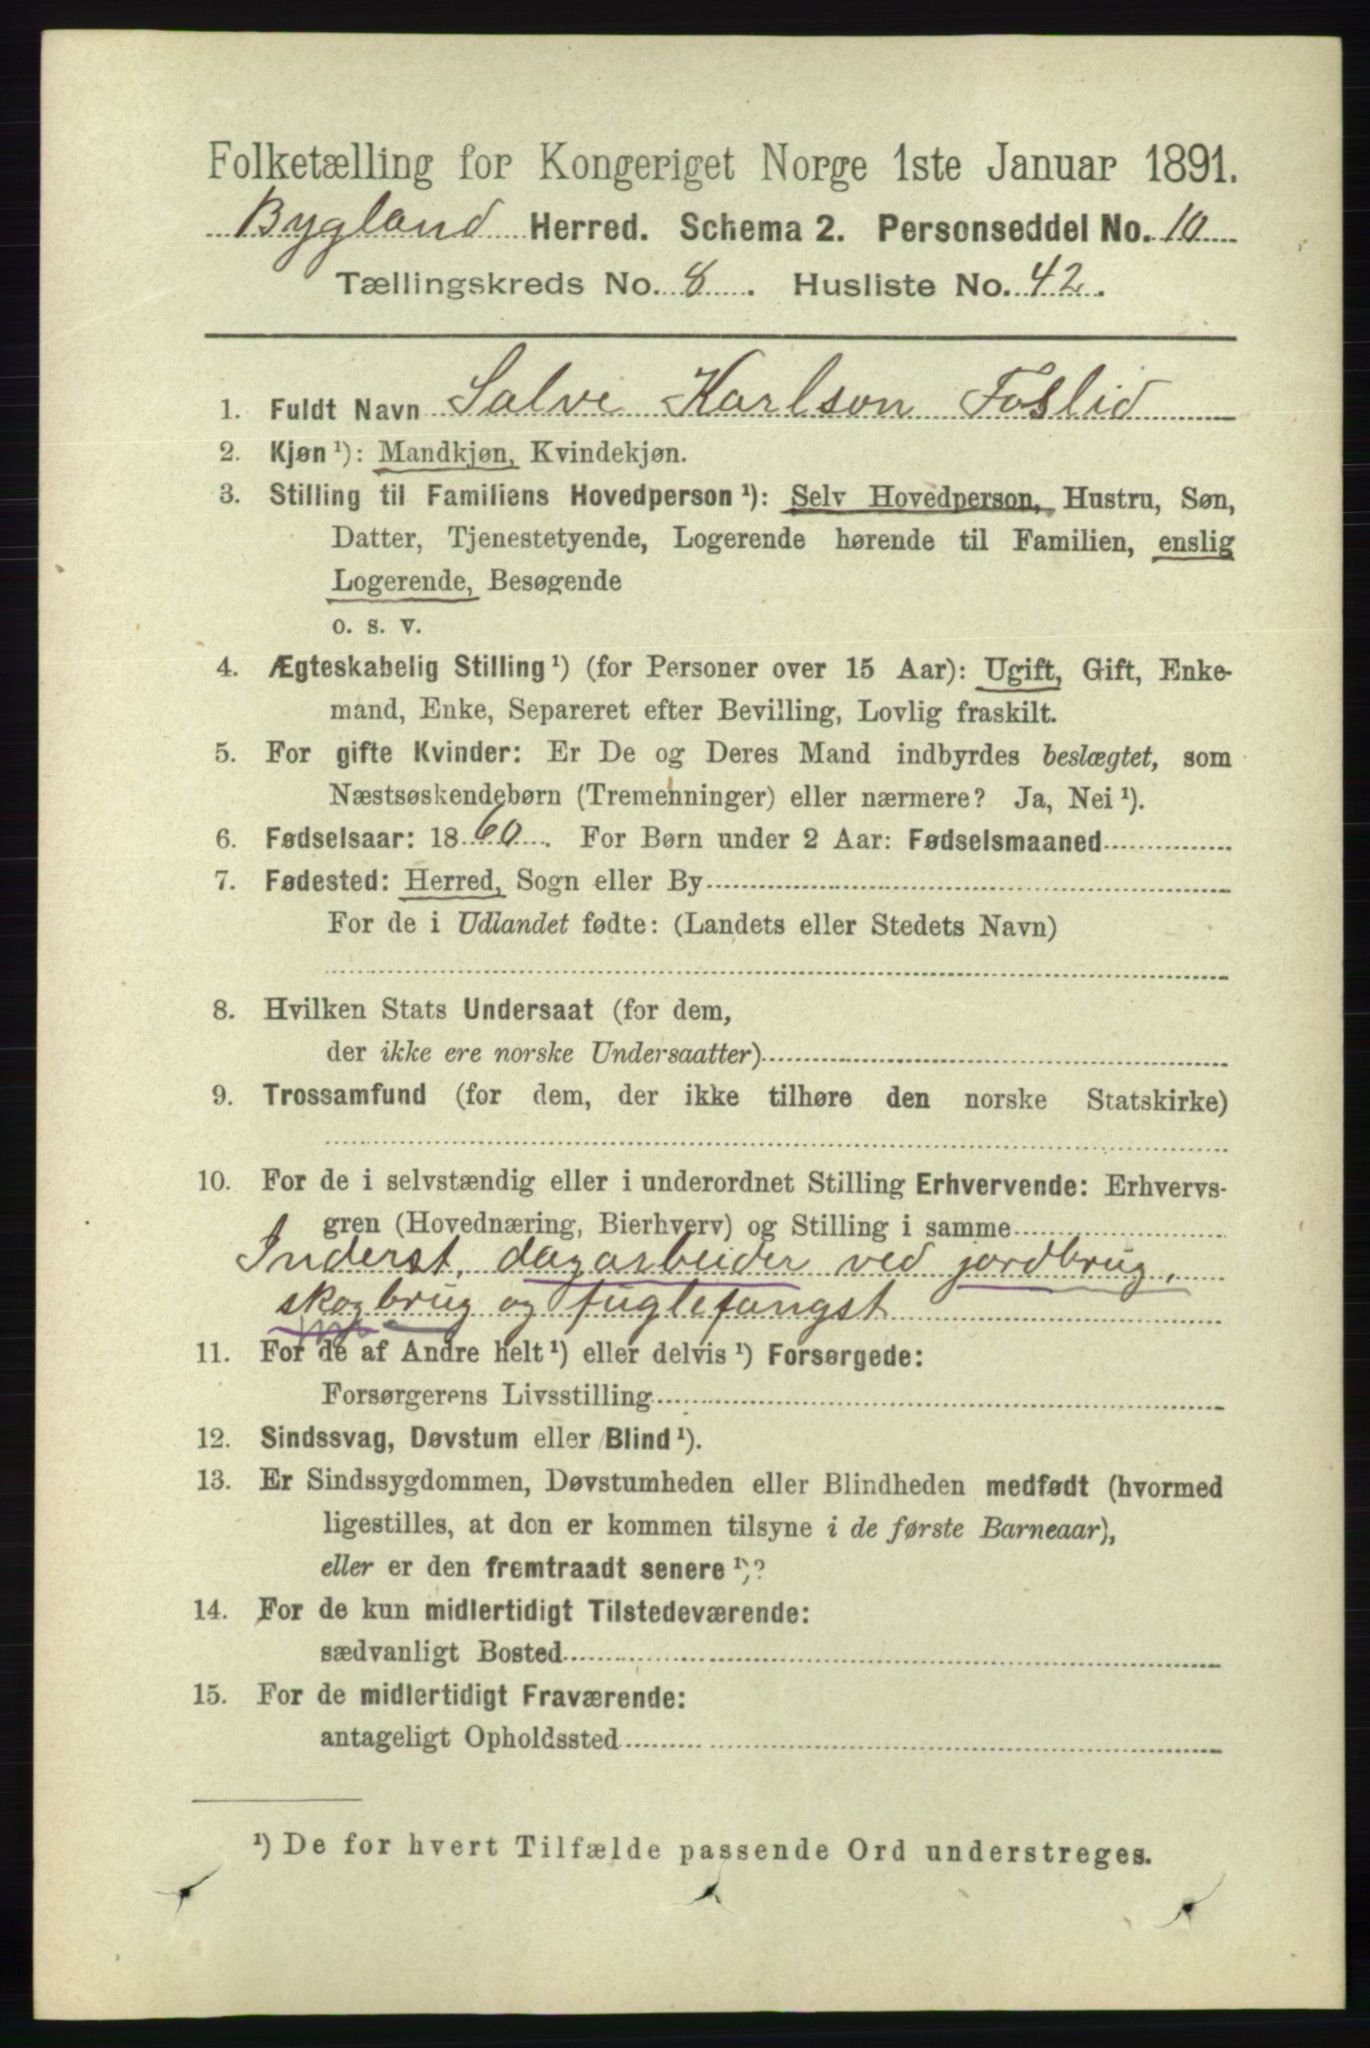 Folketælling for Kongeriget Norge 1ste Januar 1891.
Bygland Herred. Schema 2. Personseddel No. 10
Tællingskreds No. 8. Husliste No. 42.
1. Fuldt Navn Salve Karlson Foslid
2. Kjøn ¹): Mandkjøn, Kvindekjøn.
3. Stilling til Familiens Hovedperson ¹): Selv Hovedperson, Hustru, Søn,
Datter, Tjenestetyende, Logerende hørende til Familien, enslig
Logerende, Besøgende
o. s. v.
4. Ægteskabelig Stilling ¹) (for Personer over 15 Aar): Ugift, Gift, Enke-
mand, Enke, Separeret efter Bevilling, Lovlig fraskilt.
5. For gifte Kvinder: Er De og Deres Mand indbyrdes beslægtet, som
Næstsøskendebørn (Tremenninger) eller nærmere? Ja, Nei ¹).
6. Fødselsaar: 1860. For Børn under 2 Aar: Fødselsmaaned
7. Fødested: Herred, Sogn eller By
For de i Udlandet fødte: (Landets eller Stedets Navn)
8. Hvilken Stats Undersaat (for dem,
der ikke ere norske Undersaatter)
9. Trossamfund (for dem, der ikke tilhøre den norske Statskirke)
10. For de i selvstændig eller i underordnet Stilling Erhvervende: Erhvervs-
gren (Hovednæring, Bierhverv) og Stilling i samme
Inderst, dagarbeider ved jordbrug,
skogbrug og fuglefangst
11. For de af Andre helt ¹) eller delvis ¹) Forsørgede:
Forsørgerens Livsstilling
12. Sindssvag, Døvstum eller Blind ¹).
13. Er Sindssygdommen, Døvstumheden eller Blindheden medfødt (hvormed
ligestilles, at den er kommen tilsyne i de første Barneaar),
eller er den fremtraadt senere ¹)?
14. For de kun midlertidigt Tilstedeværende:
sædvanligt Bosted
15. For de midlertidigt Fraværende:
antageligt Opholdssted
¹) De for hvert Tilfælde passende Ord understreges.